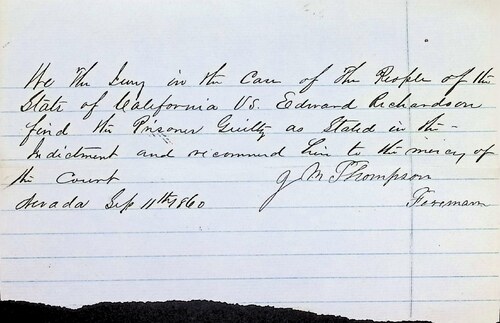 We The Jury in the Case of The People of the
State of California VS. Edward Richardson
find the Prisoner Guilty as Stated in the-
Indictment and recommend him to the mercy of
the Court
J M Thompson
Nevada Sep 11th 1860
Foremann